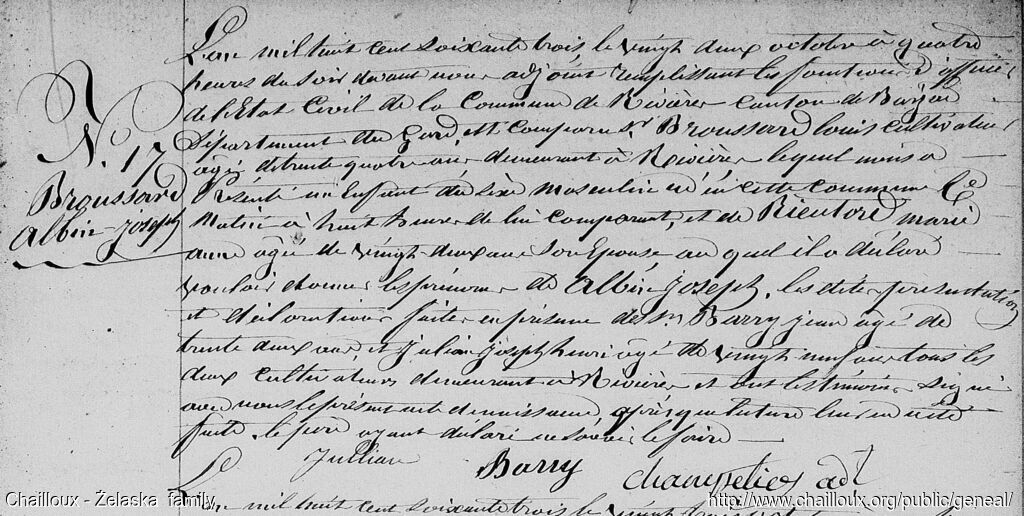 N.° 17
Broussard
Albin-Joseph
L'an mil huit cent soixante trois le vingt deux octobre à quatre
heures du soir devant nous adjoint remplissant les fonctions d'officier
de l'Etat Civil de la Commune de Rivières canton de Barjac
Département du Gard est comparu Sr Broussard louis cultivateur
agé de trente quatre ans demeurant à Rivières lequel nous a
Présenté un Enfant du sexe masculin né en cette commune Ce
Matin à huit heures de lui comparant, et de Rieutord marie
anne agée de vingt-deux ans son Epouse au quel il a déclaré
vouloir donner les prénoms de Albin Joseph, les dites présentation
et déclaration faites en présence de Sr Barry jean agé de
trente deux ans, et Julian joseph henri agé de vingt neuf ans tous les
deux cultivateurs demeurant à Rivières et ont les témoins signé
avec nous le présent acte de naissance, après que lecture leur en a été
faite, le père ayant déclaré ne savoir le faire
Jullian Barry adt
L'an mil huit cent soixante trois le vingt
Chailloux - Żelaska family
http://www.chailloux.org/public/geneal/